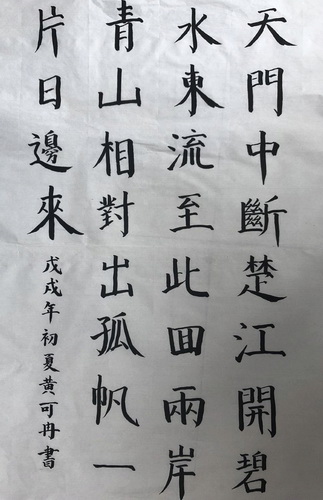 天門中斷楚江開碧
水東流至此回兩岸
青山相對出孤帆一
片日邊來
戊戌年初夏黃可冉書